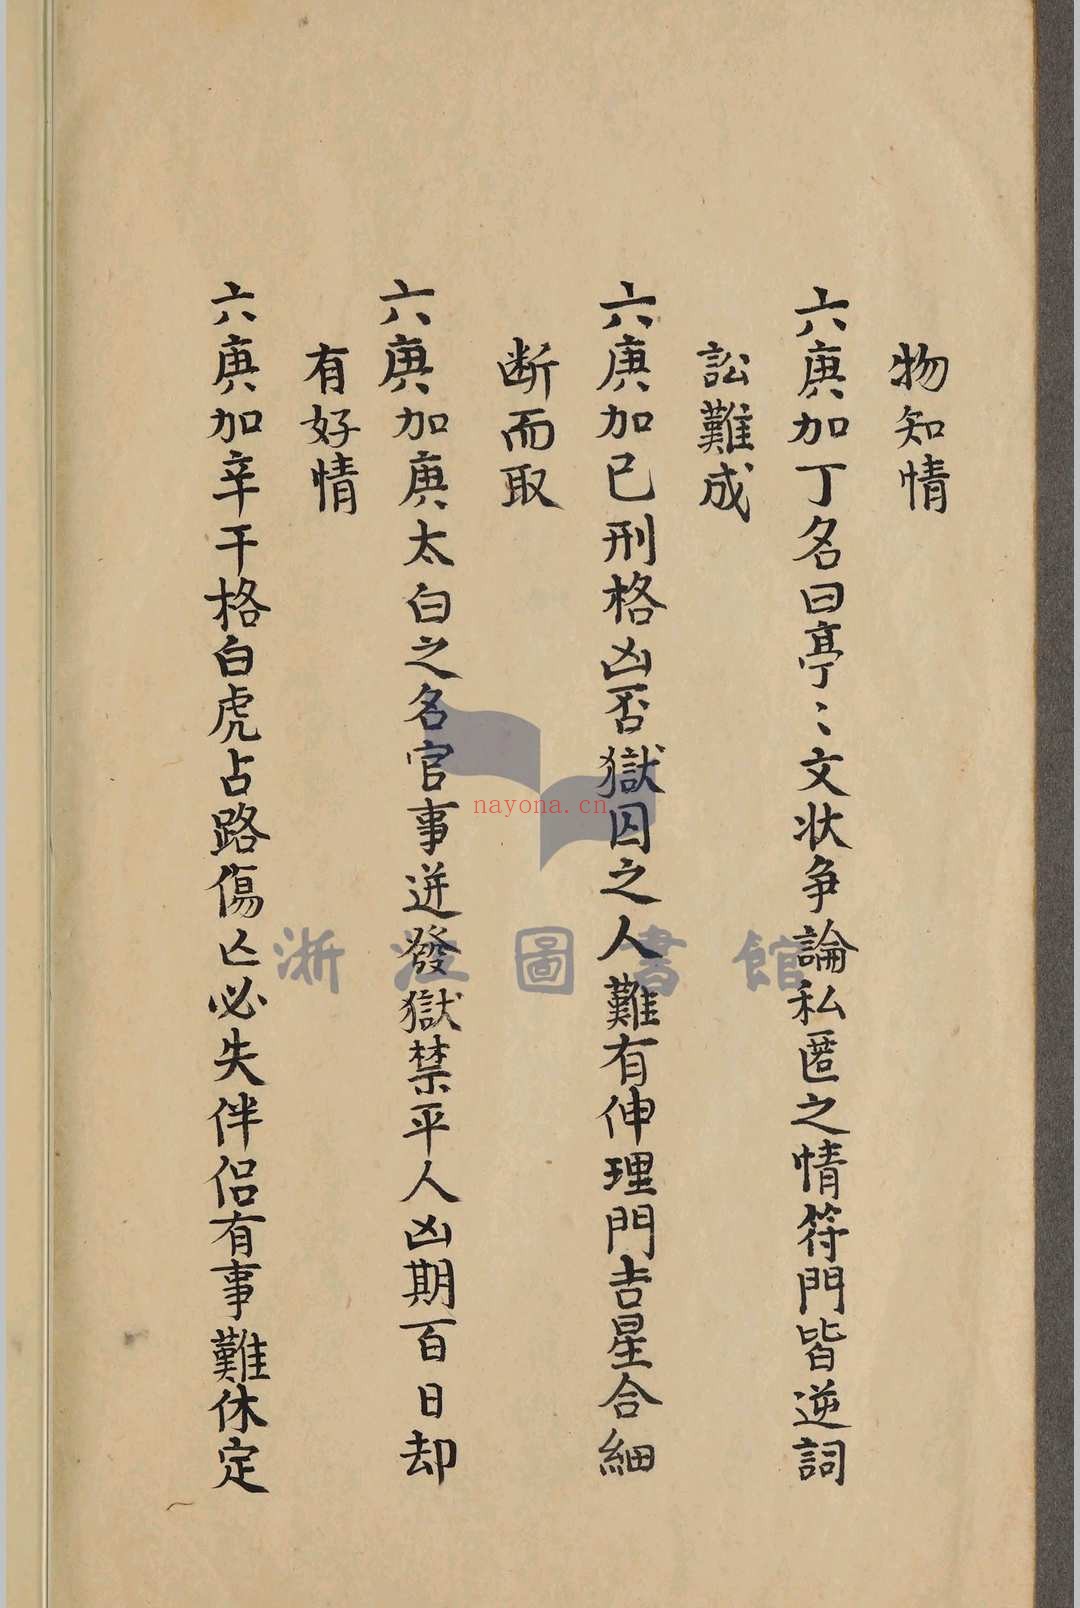 物知情
六庚加丁名曰亭〻文状争論私匿之情符門皆逆詞
訟難成
六庚加已刑格凶否獄囚之人難有伸理門吉星合細
断而取
六庚加庚太白之名官事迸發獄禁平人凶期百日却
有好情
六庚加辛干格白虎占路傷亾必失伴侣有事難休定
nayona.cn
浙江圖書館